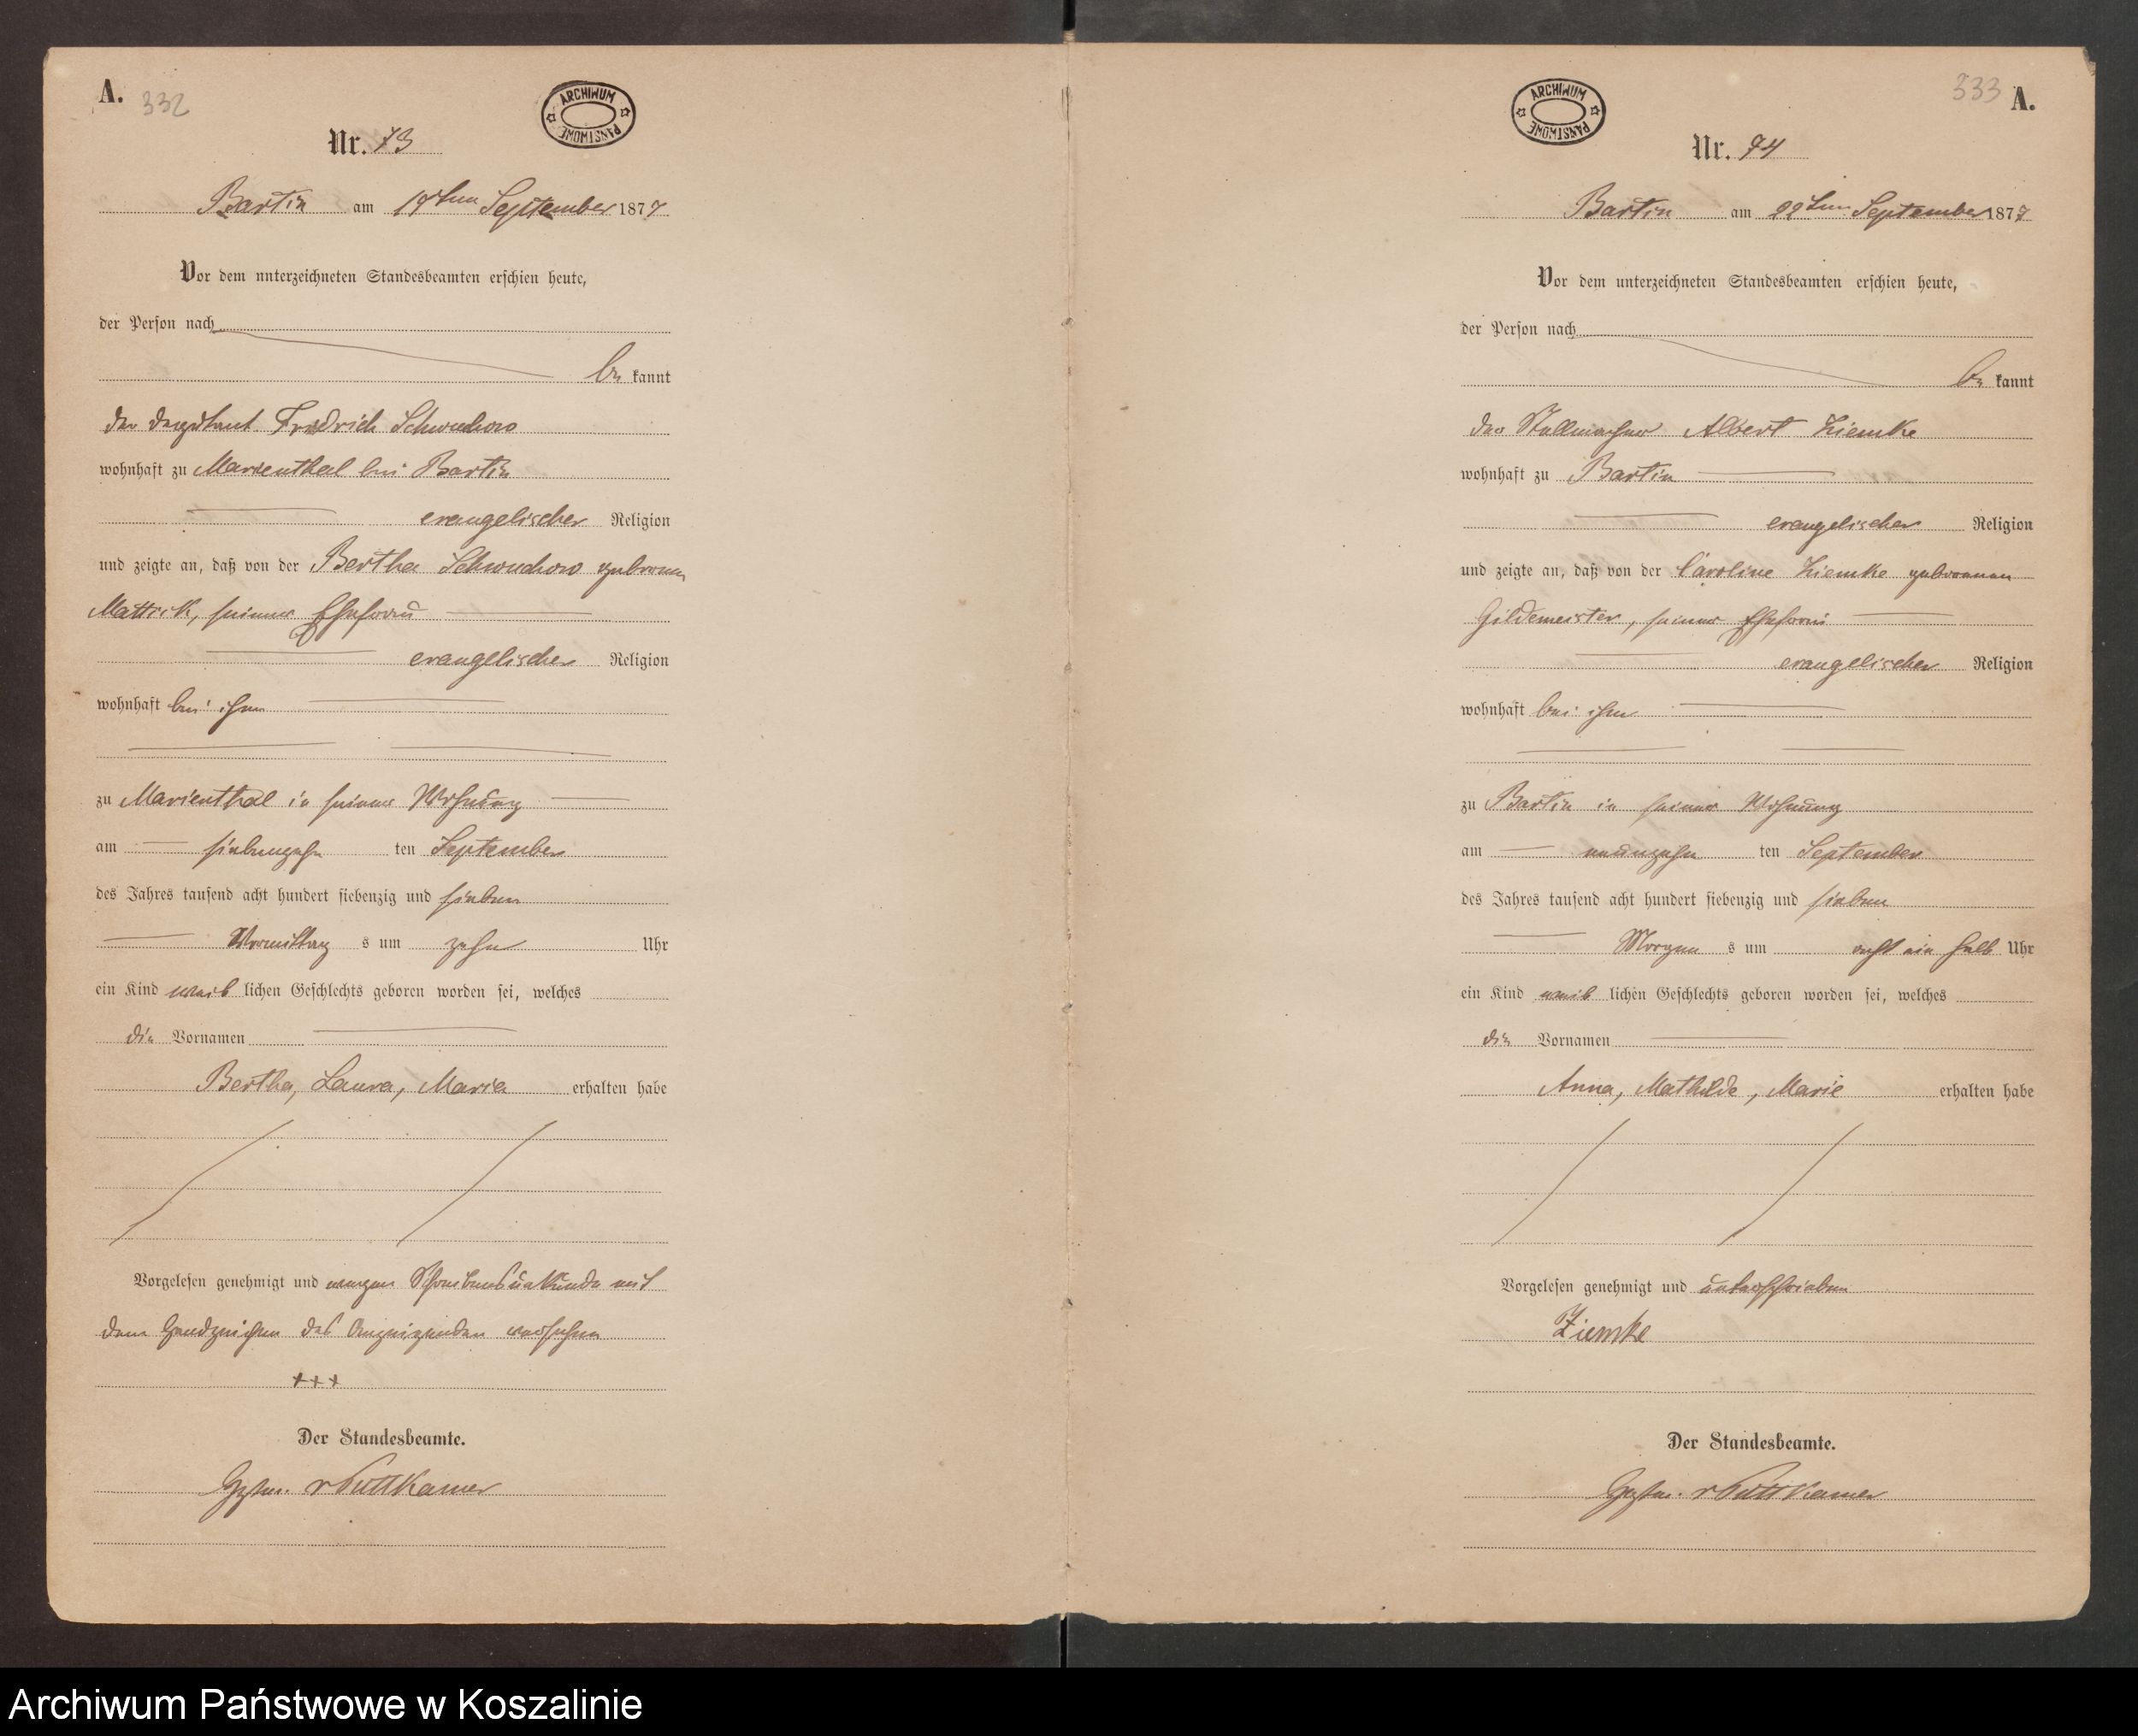 A. 332
ARCHIWUM PAŃSTWOWE
Nr. 73
Bartin am 17ten September 1877
Vor dem unterzeichneten Standesbeamten erschien heute,
der Person nach
be kannt
der Friedrich Schwuchow
wohnhaft zu Marienthal bei Bartin
evangelischer Religion
und zeigte an, daß von der Bertha Schwuchow geborenen
Mattick, seiner Ehefrau
evangelischer Religion
wohnhaft bei ihm
zu Marienthal in seiner Wohnung
am siebenzehn ten September
des Jahres tausend acht hundert siebenzig und sieben
Vormittag s um zehn Uhr
ein Kind weib lichen Geschlechts geboren worden sei, welches
die Vornamen
Bertha, Laura, Maria erhalten habe
Vorgelesen genehmigt und wegen Schreibensunkunde mit
dem Handzeichen des Anzeigenden versehen
+++
Der Standesbeamte.
Gezten. v Puttkamer
333 A.
ARCHIWUM PAŃSTWOWE
Nr. 74
Bartin am 22ten September 1877
Vor dem unterzeichneten Standesbeamten erschien heute,
der Person nach
be kannt
der Stellmacher Albert Ziemke
wohnhaft zu Bartin
evangelischer Religion
und zeigte an, daß von der Caroline Ziemke geborenen
Gildemeister, seiner Ehefrau
evangelischer Religion
wohnhaft bei ihm
zu Bartin in seiner Wohnung
am neunzehn ten September
des Jahres tausend acht hundert siebenzig und sieben
Morgen s um acht ein halb Uhr
ein Kind weib lichen Geschlechts geboren worden sei, welches
die Vornamen
Anna, Mathilde, Marie erhalten habe
Vorgelesen genehmigt und unterschrieben
Ziemke
Der Standesbeamte.
Gezten. v Puttkamer
Archiwum Państwowe w Koszalinie